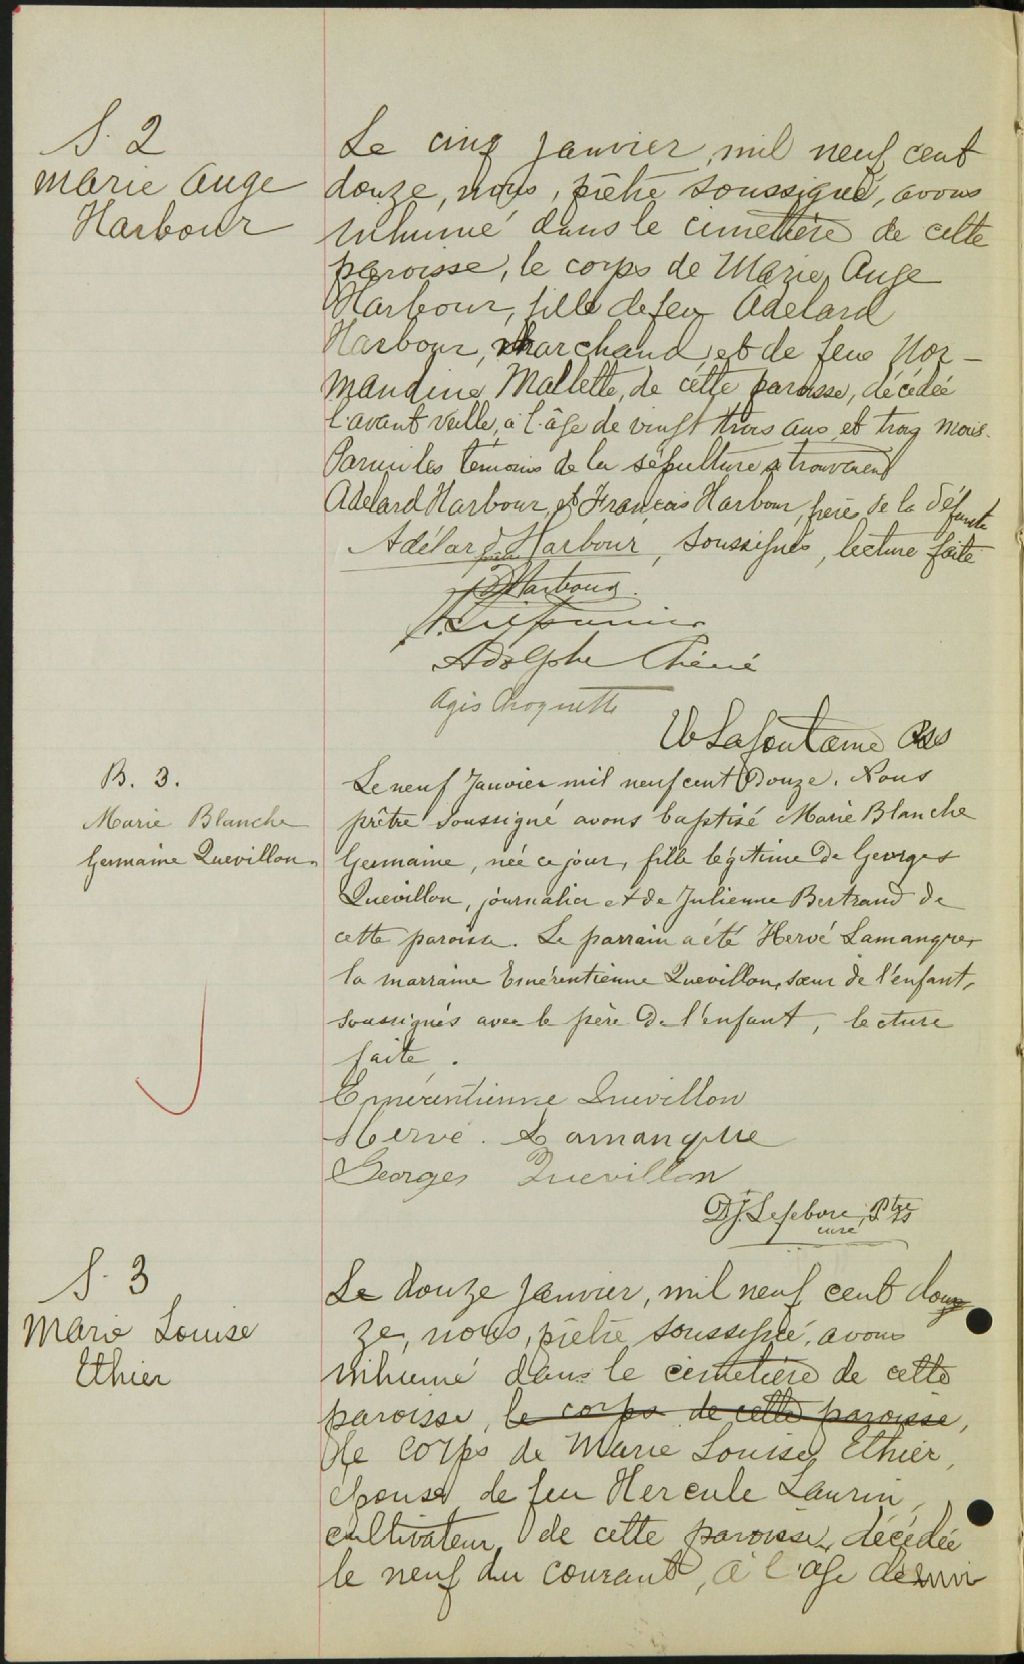 S. 2
Marie Ange
Harbour
Le cinq Janvier, mil neuf cent
douze, nous, prêtre soussigné, avons
inhumé dans le cimetière de cette
paroisse, le corps de Marie Ange
Harbour, fille de feu Adelard
Harbour, marchand, et de feue Nor-
mandine Mallette, de cette paroisse, décédée
l'avant veille, à l'âge de vingt trois ans et trois mois.
Parmi les témoins de la sépulture se trouvaient
Adelard Harbour et François Harbour, frères de la défunte
Adélard Harbour, soussignés, lecture faite
Harbour.
Adolphe Chéné
Agis Choquette
Lafontaine
B. 3.
Marie Blanche
Germaine Quevillon
Le neuf Janvier mil neuf cent Douze. Nous
prêtre soussigné avons baptisé Marie Blanche
Germaine, née ce jour, fille légitime de Georges
Quevillon, journalier et de Julienne Bertrand de
cette paroisse. Le parrain a été Hervé Lamangue
la marraine Emérentienne Quevillon, sœur de l'enfant,
soussignés avec le père de l'enfant, lecture
faite.
Emérentienne Quevillon
Hervé. Lamangue
Georges Quevillon
D. J. Lefebvre, Ptre
curé
S. 3
Marie Louise
Ethier
Le douze Janvier, mil neuf cent dou
ze, nous, prêtre soussigné, avons
inhumé dans le cimetière de cette
paroisse, le corps de cette paroisse,
le corps de Marie Louise Ethier,
épouse de feu Hercule Laurin,
cultivateur, de cette paroisse, décédée
le neuf du courant, à l'âge de